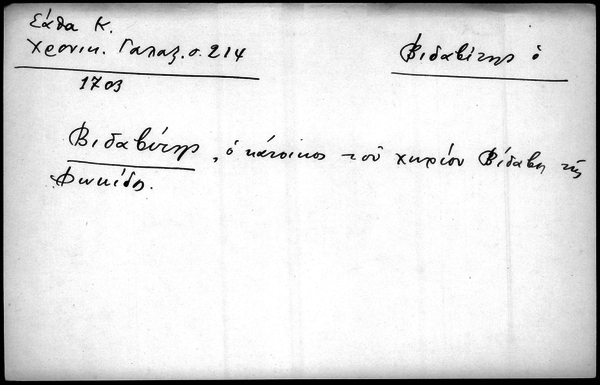 Σάθα Κ.
Χρονικ. Γαλαξ. σ. 214
1703
Βιδαβίτης ὁ
Βιδαβίτης, ὁ κάτοικος τοῦ χωρίου Βίδαβη τῆς
Φωκίδος.